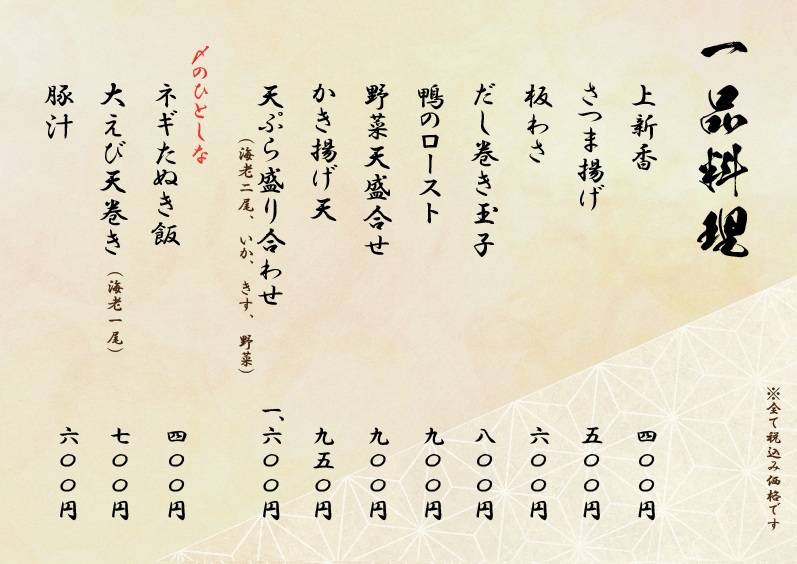 一品料理
上新香 四〇〇円
さつま揚げ 五〇〇円
板わさ 六〇〇円
だし巻き玉子 八〇〇円
鴨のロースト 九〇〇円
野菜天盛合せ 九〇〇円
かき揚げ天 九五〇円
天ぷら盛り合わせ 一、六〇〇円
（海老二尾、いか、きす、野菜）
〆のひとしな
ネギたぬき飯 四〇〇円
大えび天巻き（海老一尾） 七〇〇円
豚汁 六〇〇円
※全て税込み価格です